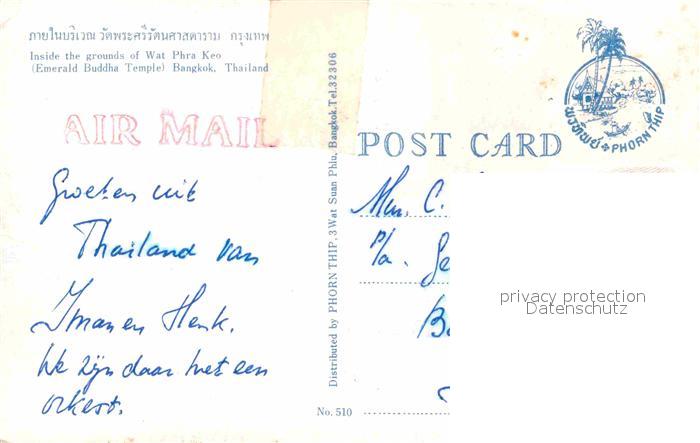 ภายในบริเวณ วัดพระศรีรัตนศาสดาราม กรุงเทพ
Inside the grounds of Wat Phra Keo
(Emerald Buddha Temple) Bangkok, Thailand
AIR MAIL
Groeten uit
Thailand van
Iman en Henk.
We zijn daar met een
orkest.
Distributed by PHORN THIP, 3 Wat Suan Phlu, Bangkok. Tel. 32306
No. 510
POST CARD
พรทิพย์ PHORN THIP
C.
p/a.
privacy protection
Datenschutz